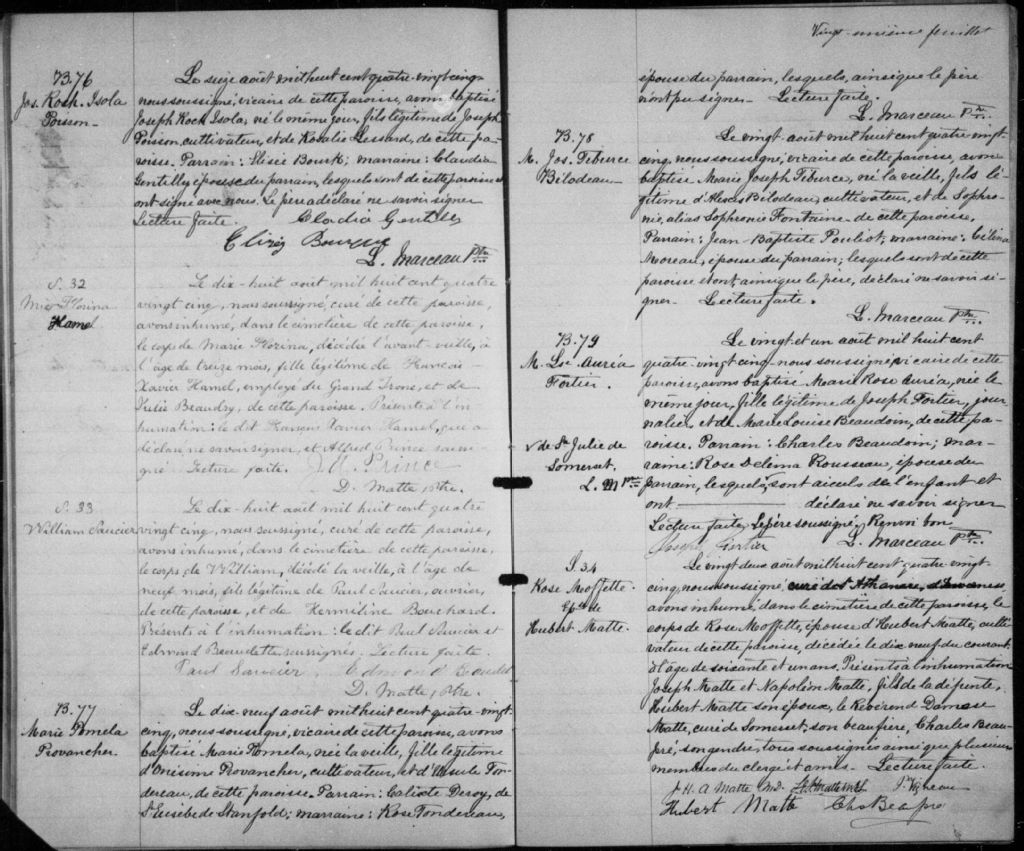 B.76
Jos. Roch. Isola
Poisson
Le seize août mil huit cent quatre-vingt cinq
nous soussigné, vicaire de cette paroisse, avons baptisé
Joseph Roch Isola, né le même jour, fils légitime de Joseph
Poisson, cultivateur, et de Rosalie Lessard, de cette pa-
roisse. Parrain: Elisée Bourk; marraine: Claudia
Gentilly épouse du parrain, lesquels sont de cette paroisse et
ont signé avec nous. Le père a déclaré ne savoir signer
Lecture faite.
L. Marceau Ptre
S. 32
Marie Florina
Hamel
Le dix-huit août mil huit cent quatre
vingt cinq, nous soussigné, curé de cette paroisse,
avons inhumé, dans le cimetière de cette paroisse,
le corps de Marie Florina, décédée l'avant-veille, à
l'âge de treize mois, fille légitime de François
Xavier Hamel, employé du Grand Tronc, et de
Julie Beaudry, de cette paroisse. Présents à l'in
humation: le dit François Xavier Hamel, qui a
déclaré ne savoir signer, et Alfred Prince sous-
igné. Lecture faite. Prince
D. Matte, ptre.
S. 33
William Saucier
Le dix-huit août mil huit cent quatre
vingt cinq, nous soussigné, curé de cette paroisse,
avons inhumé, dans le cimetière de cette paroisse,
le corps de William, décédé la veille, à l'âge de
neuf mois, fils légitime de Paul Saucier, ouvrier,
de cette paroisse, et de Hermiline Bouchard.
Présents à l'inhumation: le dit Paul Saucier et
Edmond Beaudette soussignés. Lecture faite.
Paul Saucier. Edmond
D. Matte, ptre.
B.77
Marie Pomela
Provancher.
Le dix-neuf août mil huit cent quatre-vingt
cinq, nous soussigné, vicaire de cette paroisse, avons
baptisé Marie Pomela, née la veille, fille légitime
d'Onésime Provancher, cultivateur, et d'Ursule Ton-
dereau, de cette paroisse. Parrain: Calixte Deroy, de
St Eusèbe de Stanfold; marraine: Rose Tondereau,
Vingt-unième feuillet
épouse du parrain, lesquels, ainsi que le père
n'ont pu signer. Lecture faite.
L. Marceau Ptre
B.78
M. Jos. Tiburce
Bilodeau
Le vingt août mil huit cent quatre vingt
cinq, nous soussigné, vicaire de cette paroisse, avons
baptisé Marie Joseph Tiburce, né la veille, fils lé-
gitime d'Alexis Bilodeau, cultivateur, et de Sophro-
nie, alias Sophronie Fontaine de cette paroisse,
Parrain: Jean-Baptiste Pouliot, marraine: Célina
Moreau, épouse du parrain; lesquels sont de cette
paroisse et ont, ainsi que le père, déclaré ne savoir si-
gner. Lecture faite.
L. Marceau Ptre
B.79
M. Auréa
Fortier.
Le vingt et un août mil huit cent
quatre-vingt cinq nous soussigné vicaire de cette
paroisse, avons baptisé Marie Rose Auréa, née le
même jour, fille légitime de Joseph Fortier, jour
nalier, et de Marie Louise Beaudoin, de cette pa-
roisse. Parrain: Charles Beaudoin; mar-
raine: Rose Delima Rousseau, épouse du
parrain, lesquels sont aieuls de l'enfant et
ont déclaré ne savoir signer
Lecture faite. Le père soussigné. Renvoi bon
v de Ste Julie de
Somerset.
L. M Ptre
Joseph Fortier L. Marceau Ptre
S. 34
Rose Moffette
Epse de
Hubert Matte.
Le vingt deux août mil huit cent quatre-vingt
cinq, nous soussigné
avons inhumé, dans le cimetière de cette paroisse, le
corps de Rose Moffette, épouse d'Hubert Matte, culti-
vateur de cette paroisse, décédée le dix neuf du courant
à l'âge de soixante et un ans. Présents à l'inhumation
Joseph Matte et Napoléon Matte, fils de la défunte,
Hubert Matte son époux, le Révérend Damase
Matte, curé de Somerset, son beau frère, Charles Beau-
pré, son gendre, tous soussignés ainsi que plusieurs
membres du clergé et amis. Lecture faite.
J. H. A Matte M.D.
Hubert Matte